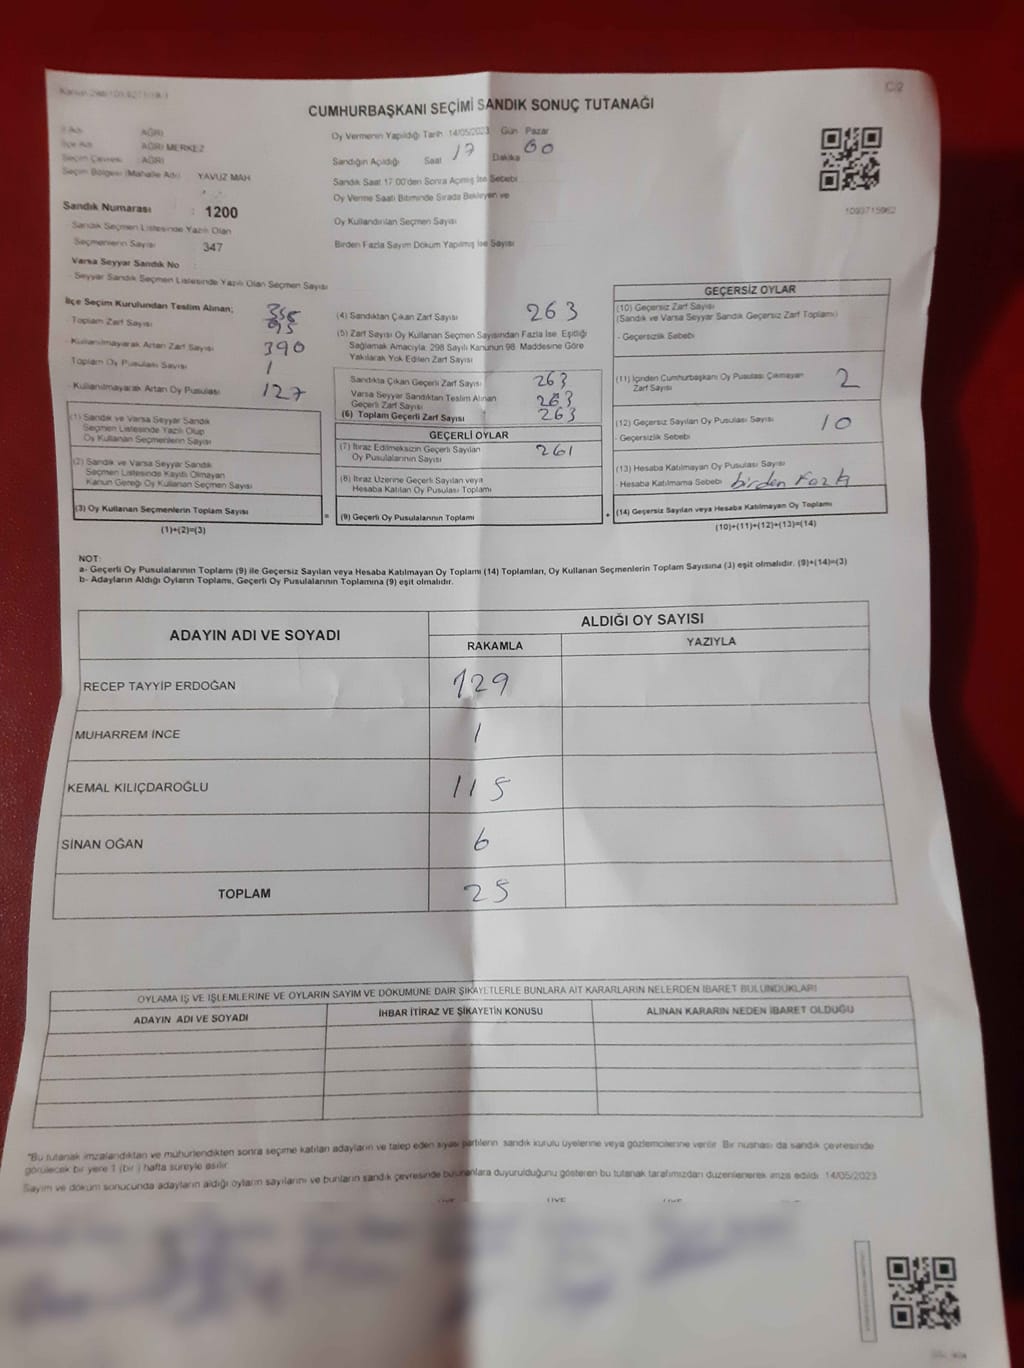 C/2
CUMHURBAŞKANI SEÇİMİ SANDIK SONUÇ TUTANAĞI
İli Adı AĞRI
İlçe Adı AĞRI MERKEZ
Seçim Çevresi : AĞRI
Seçim Bölgesi (Mahalle Adı) YAVUZ MAH
Sandık Numarası : 1200
Sandık Seçmen Listesinde Yazılı Olan
Seçmenlerin Sayısı 347
Varsa Seyyar Sandık No
Seyyar Sandık Seçmen Listesinde Yazılı Olan Seçmen Sayısı
Oy Vermenin Yapıldığı Tarih 14/05/2023 Gün Pazar
Sandığın Açıldığı Saat 17 Dakika 00
Sandık Saat 17:00'den Sonra Açılmış İse Sebebi
Oy Verme Saati Bitiminde Sırada Bekleyen ve
Oy Kullandırılan Seçmen Sayısı
Birden Fazla Sayım Döküm Yapılmış İse Sayısı
1093715962
İlçe Seçim Kurulundan Teslim Alınan;
Toplam Zarf Sayısı
- Kullanılmayarak Artan Zarf Sayısı 390
Toplam Oy Pusulası Sayısı 1
- Kullanılmayarak Artan Oy Pusulası 127
(1) Sandık ve Varsa Seyyar Sandık
Seçmen Listesinde Yazılı Olup
Oy Kullanan Seçmenlerin Sayısı
(2) Sandık ve Varsa Seyyar Sandık
Seçmen Listesinde Kayıtlı Olmayan
Kanun Gereği Oy Kullanan Seçmen Sayısı
(3) Oy Kullanan Seçmenlerin Toplam Sayısı
(1)+(2)=(3)
(4) Sandıktan Çıkan Zarf Sayısı 263
(5) Zarf Sayısı Oy Kullanan Seçmen Sayısından Fazla İse, Eşitliği
Sağlamak Amacıyla, 298 Sayılı Kanunun 98. Maddesine Göre
Yakılarak Yok Edilen Zarf Sayısı
Sandıkta Çıkan Geçerli Zarf Sayısı 263
Varsa Seyyar Sandıktan Teslim Alınan
Geçerli Zarf Sayısı 263
(6) Toplam Geçerli Zarf Sayısı 263
GEÇERLİ OYLAR
(7) İtiraz Edilmeksizin Geçerli Sayılan
Oy Pusulalarının Sayısı 261
(8) İtiraz Üzerine Geçerli Sayılan veya
Hesaba Katılan Oy Pusulası Toplamı
= (9) Geçerli Oy Pusulalarının Toplamı
GEÇERSİZ OYLAR
(10) Geçersiz Zarf Sayısı
(Sandık ve Varsa Seyyar Sandık Geçersiz Zarf Toplamı)
- Geçersizlik Sebebi
(11) İçinden Cumhurbaşkanı Oy Pusulası Çıkmayan
Zarf Sayısı 2
(12) Geçersiz Sayılan Oy Pusulası Sayısı 10
- Geçersizlik Sebebi
(13) Hesaba Katılmayan Oy Pusulası Sayısı
- Hesaba Katılmama Sebebi birden Fazla
+ (14) Geçersiz Sayılan veya Hesaba Katılmayan Oy Toplamı
(10)+(11)+(12)+(13)=(14)
NOT:
a- Geçerli Oy Pusulalarının Toplamı (9) ile Geçersiz Sayılan veya Hesaba Katılmayan Oy Toplamı (14) Toplamları, Oy Kullanan Seçmenlerin Toplam Sayısına (3) eşit olmalıdır. (9)+(14)=(3)
b- Adayların Aldığı Oyların Toplamı, Geçerli Oy Pusulalarının Toplamına (9) eşit olmalıdır.
ADAYIN ADI VE SOYADI
ALDIĞI OY SAYISI
RAKAMLA YAZIYLA
RECEP TAYYİP ERDOĞAN 129
MUHARREM İNCE 1
KEMAL KILIÇDAROĞLU 115
SİNAN OĞAN 6
TOPLAM 25
OYLAMA İŞ VE İŞLEMLERİNE VE OYLARIN SAYIM VE DÖKÜMÜNE DAİR ŞİKAYETLERLE BUNLARA AİT KARARLARIN NELERDEN İBARET BULUNDUKLARI
ADAYIN ADI VE SOYADI İHBAR İTİRAZ VE ŞİKAYETİN KONUSU ALINAN KARARIN NEDEN İBARET OLDUĞU
"Bu tutanak imzalandıktan ve mühürlendikten sonra seçime katılan adayların ve talep eden siyasi partilerin sandık kurulu üyelerine veya gözlemcilerine verilir. Bir nüshası da sandık çevresinde
görülecek bir yere 1 (bir) hafta süreyle asılır.
Sayım ve döküm sonucunda adayların aldığı oyların sayılarını ve bunların sandık çevresinde bulunanlara duyurulduğunu gösteren bu tutanak tarafımızdan düzenlenerek imza edildi. 14/05/2023